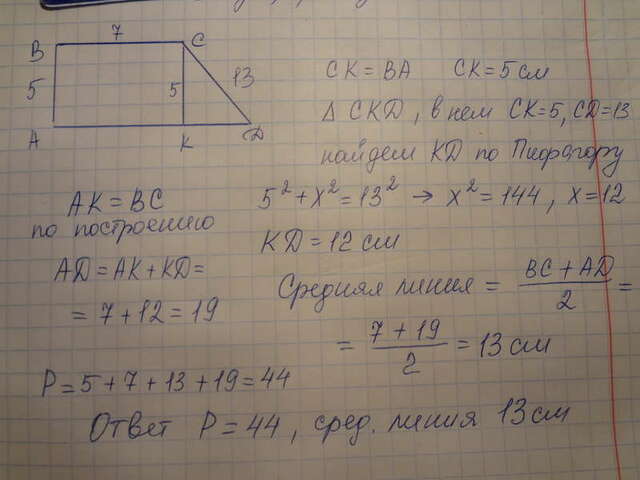 7
B C
5 5 13
A K D
CK = BA CK = 5 см
Δ CKD, в нем CK=5, CD=13
найдем KD по Пифагору
5² + x² = 13² → x² = 144, x = 12
KD = 12 см
AK = BC
по построению
AD = AK + KD =
= 7 + 12 = 19
Средняя линия = (BC + AD)/2 =
= (7 + 19)/2 = 13 см
P = 5 + 7 + 13 + 19 = 44
Ответ P = 44, сред. линия 13 см